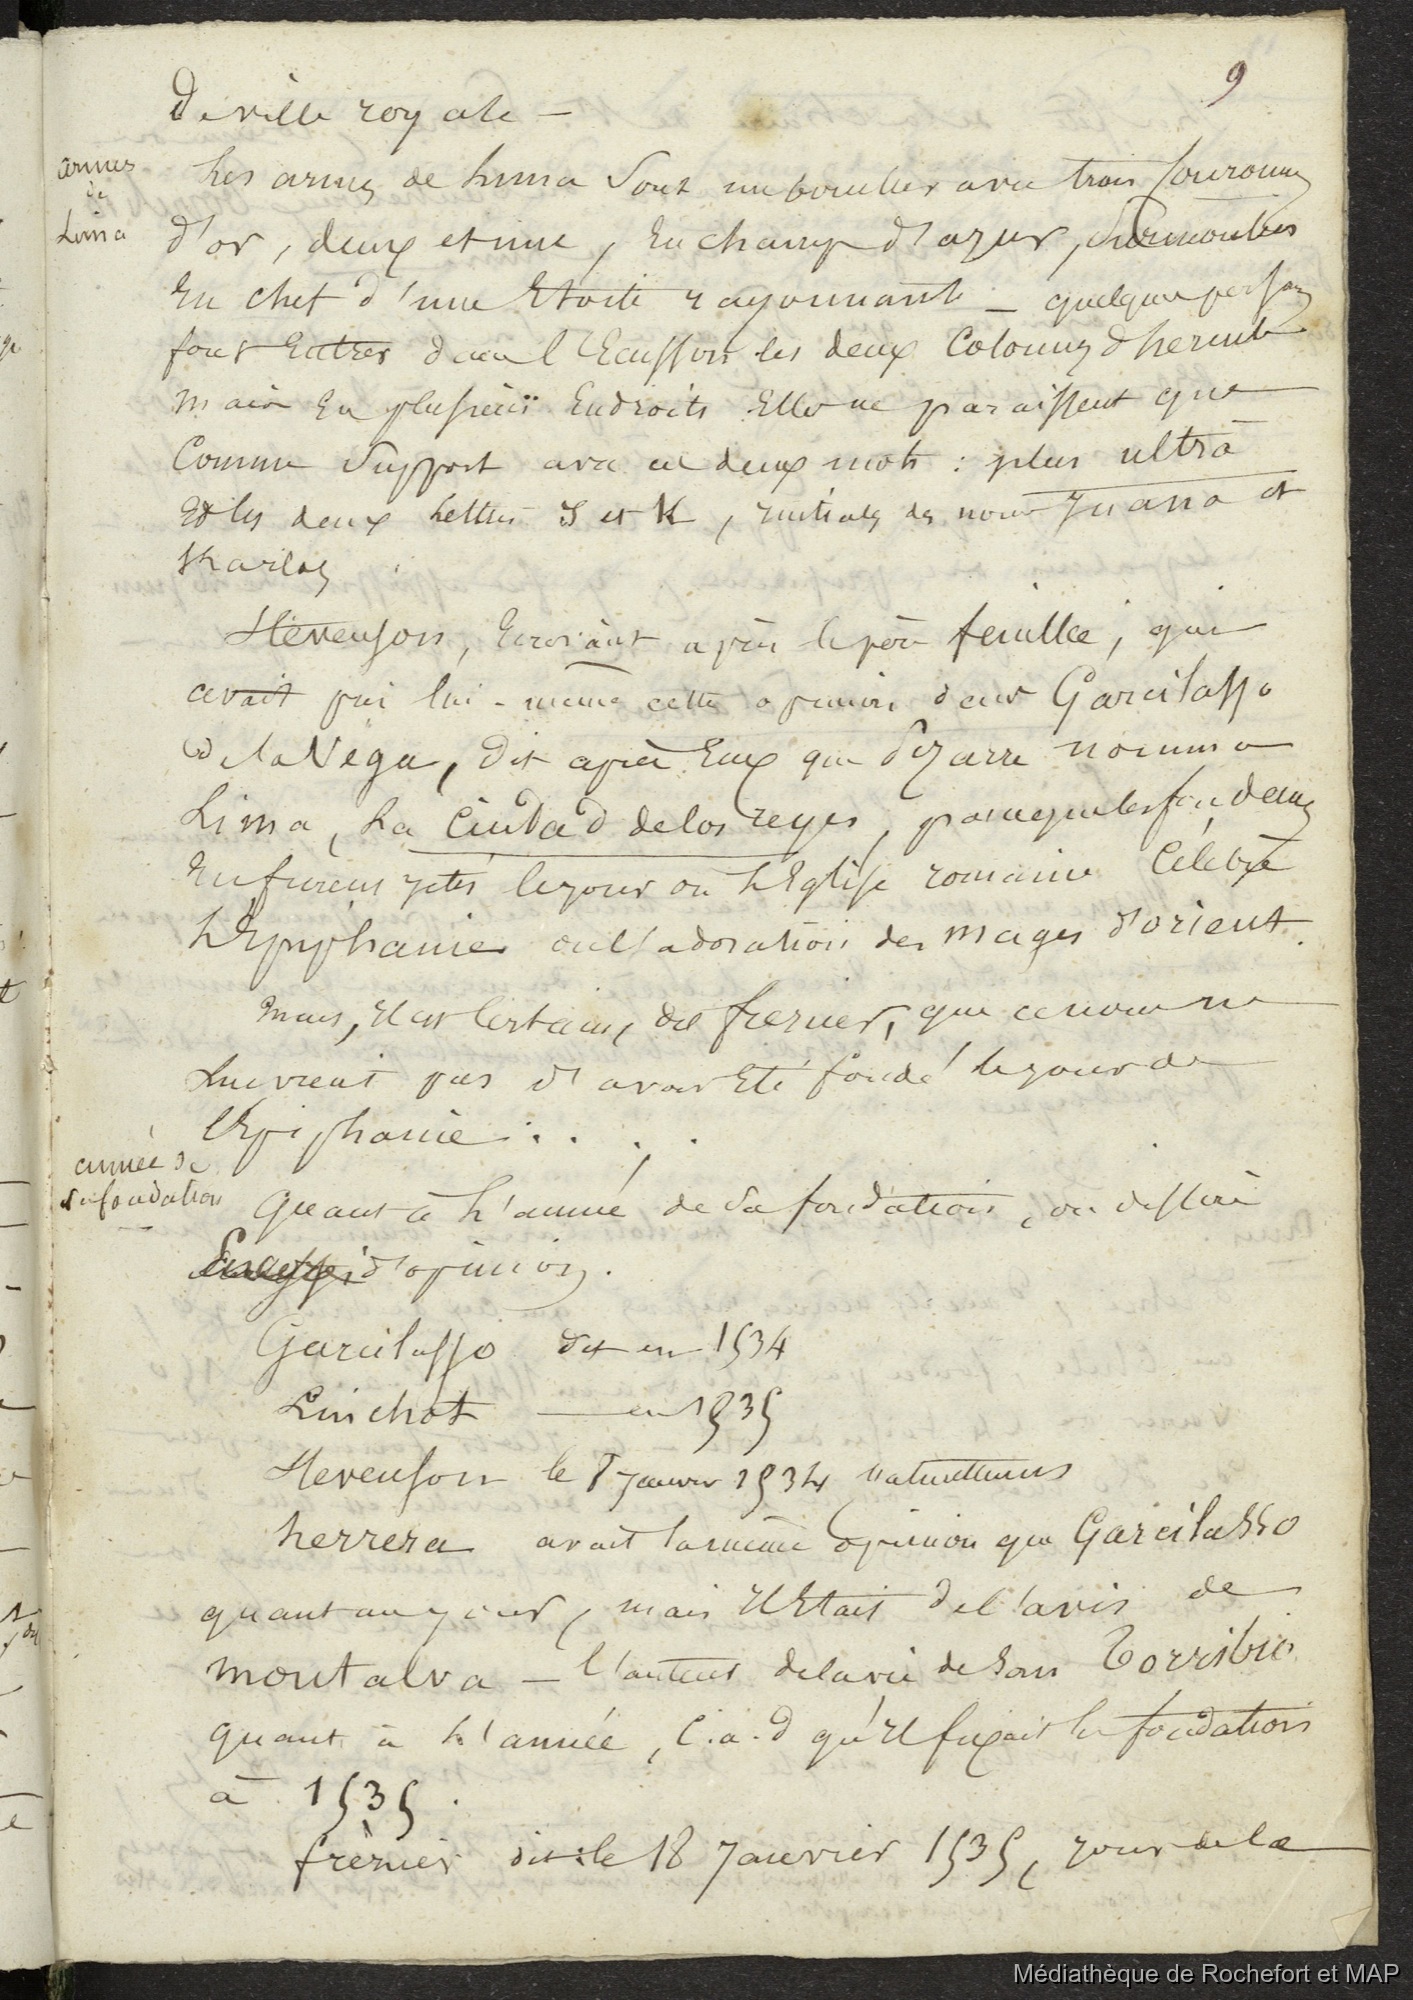 9
De ville royale –
armes
de
Lima
Les armes de Lima sont un bouclier avec trois couronnes
d'or, deux et une, en champ d'azur, surmontées
en chef d'une Etoile rayonnante – quelques personnes
font entrer dans l'Ecusson les deux Colonnes d'hercule
mais en plusieurs Endroits Elle ne paraissent que
Comme Support avec ces deux mots : plus ultrà
et les deux lettres J et K, initiales des noms Juana et
Karlos
Stevenson, Ecrivant après le père feuillée, qui
avait pris lui-même cette opinion dans Garcilasso
de la Vega, dit après Eux que Pizarre nomma
Lima, La Ciudad de los reyes, parceque les fondemens
En furent jetés le jour où l'Eglise romaine Célèbre
l'Epiphanie ou l'adoration des Mages d'orient.
mais, il est certain, dit frezier, que ce nom ne
lui vient pas d'avoir Eté fondé le jour de
l'Epiphanie . . . .
année de
sa fondation
Quant à l'année de sa fondation, on diffère
d'opinion.
Garcilasso dit en 1534
Linchot — en 1535
Stevenson le 8 janvier 1534
herrera avait la même opinion que Garcilasso
quant au jour, mais il Etait de l'avis de
montalva – l'auteur de la vie de San Torribio
quant à l'année, C.a.d qu'il fixait la fondation
à 1535.
frézier dit : le 18 Janvier 1535, jour de la
Médiathèque de Rochefort et MAP